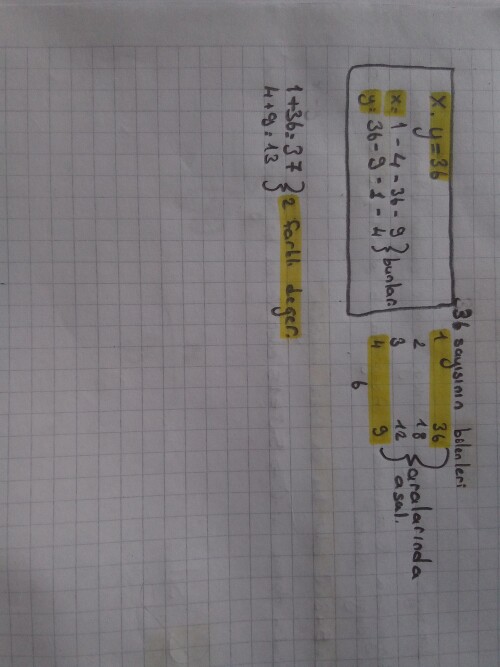 X. y = 36
x = 1 - 4 - 36 - 9 } bunlar.
y = 36 - 9 - 1 - 4
36 sayısının bölenleri
1 36
2 18
3 12
4 9
6
} aralarında asal.
1 + 36 = 37 } 2 farklı değer.
4 + 9 = 13